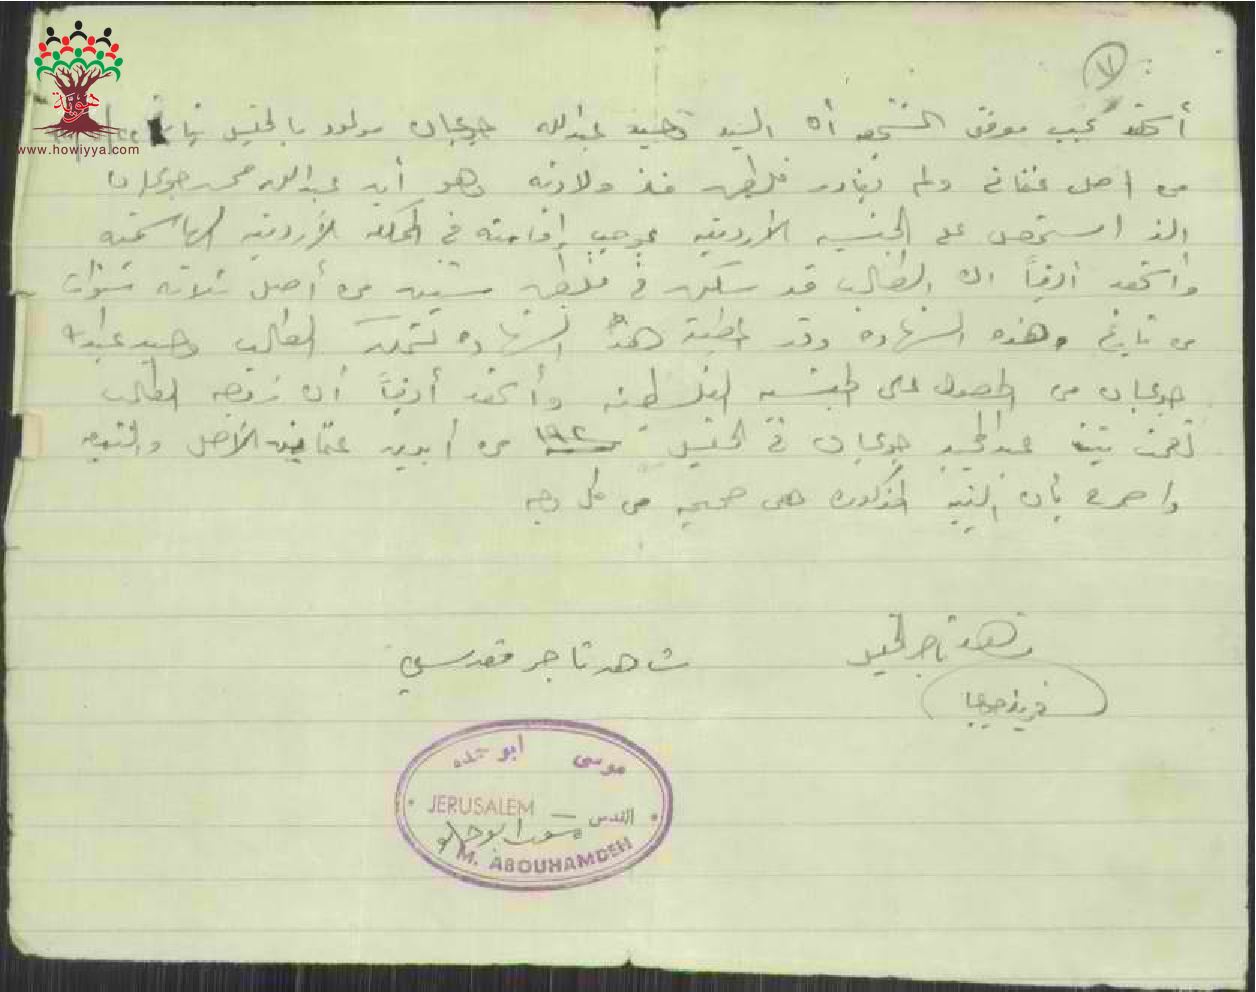 ٧
هوية
www.howiyya.com
أشهد بموقفي الشخصي أن السيد وحيد عبدالله جويحان مولود بالخليل
من أصل عثماني ولم يغادر فلسطين منذ ولادته وهو ابن عبدالله محمد جويحان
الذي استحصل على الجنسية الأردنية بموجب إقامته في المملكة الأردنية الهاشمية
وأشهد أيضاً ان الطالب قد سكن في فلسطين سنتين من أصل ثلاثة سنوات
من تاريخ وهذه الشهادة وقد اعطيت هذه الشهادة لتمكن الطالب وحيد عبدالله
جويحان من الحصول على الجنسية الفلسطينية وأشهد أيضاً أن زوجة الطالب
بنت عبدالمجيد جويحان في الخليل من أبوين عثماني الأصل والجنسية
واصرح بأن البينة المذكورة هي صحيحة من كل وجه
شاهد تاجر الخليل
شاهد تاجر مقدسي
موسى ابو حمده
JERUSALEM القدس
M. ABOUHAMDEH